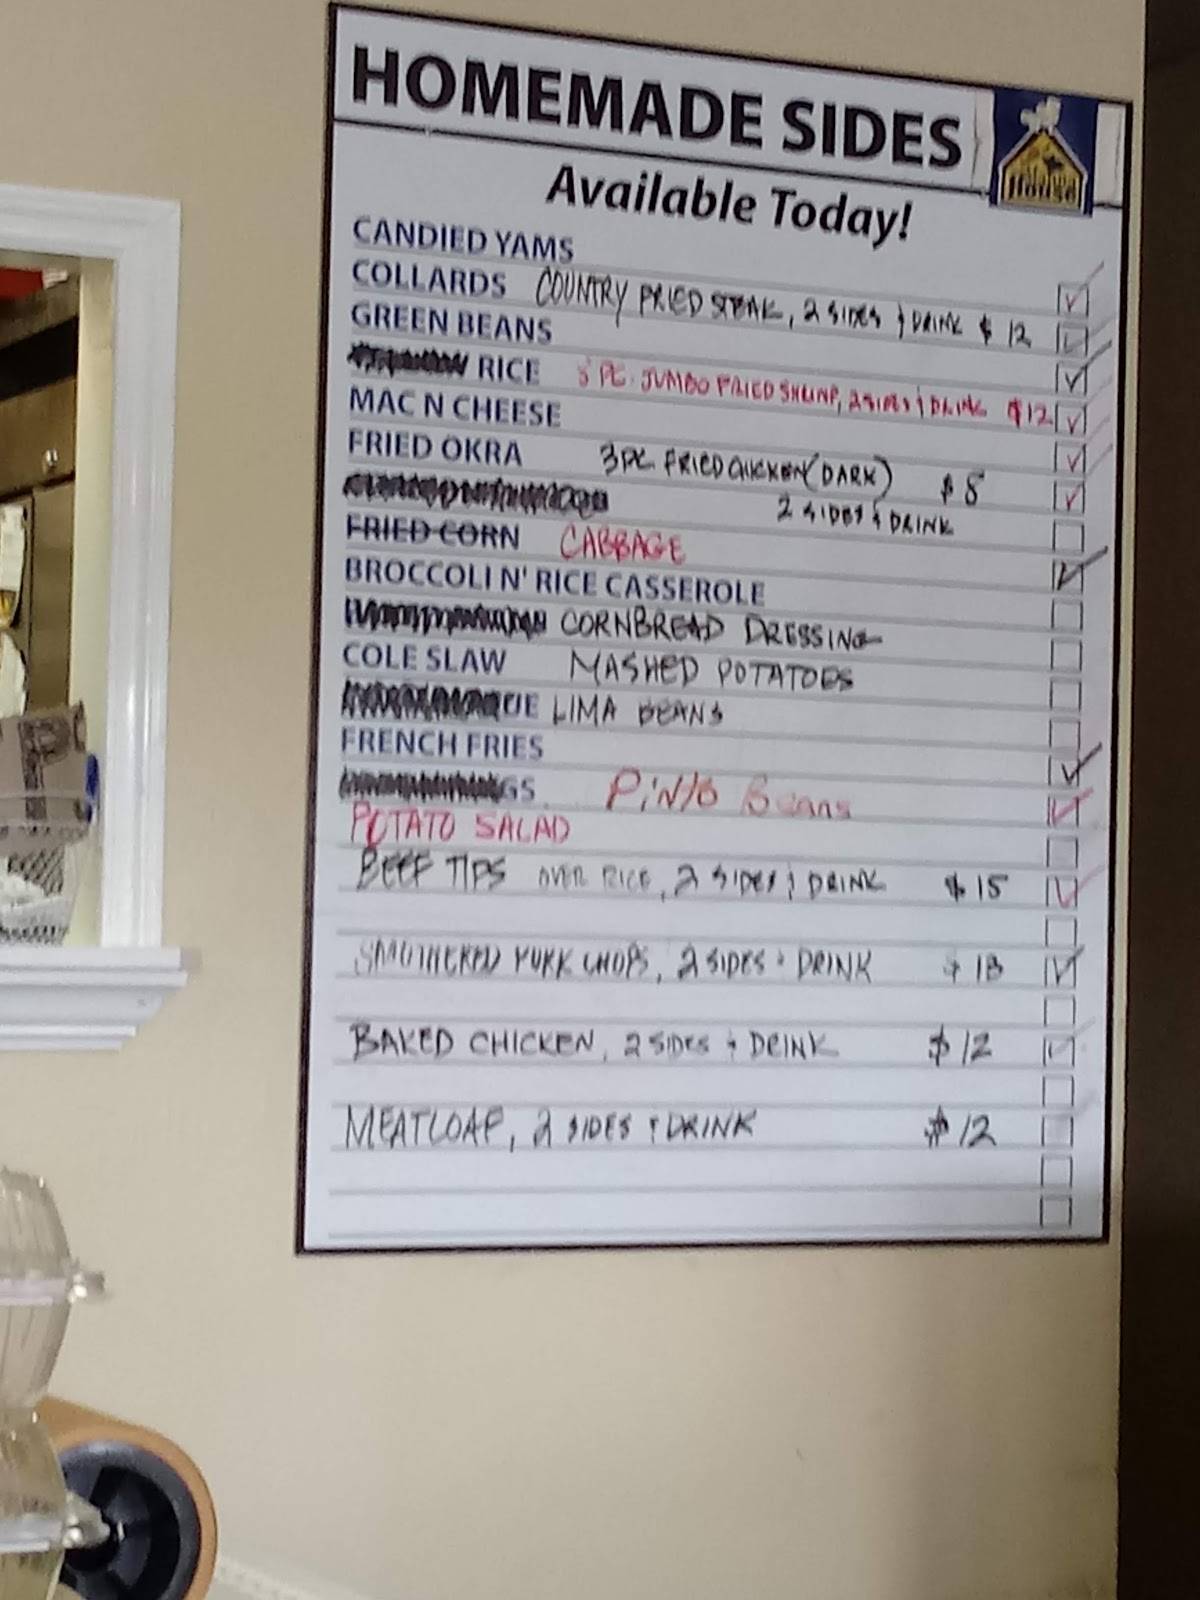 HOMEMADE SIDES
House
Available Today!
CANDIED YAMS
COLLARDS COUNTRY FRIED STEAK, 2 SIDES & DRINK $ 12
GREEN BEANS
RICE PC. JUMBO FRIED SHRIMP, 2 SIDES & DRINK $12
MAC N CHEESE
FRIED OKRA 3 PC. FRIED CHICKEN (DARK) $ 8
2 SIDES & DRINK
FRIED CORN CABBAGE
BROCCOLI N' RICE CASSEROLE
CORNBREAD DRESSING
COLE SLAW MASHED POTATOES
UE LIMA BEANS
FRENCH FRIES
GS PiNTO Beans
POTATO SALAD
BEEF TIPS OVER RICE, 2 SIDES & DRINK $ 15
SMOTHERED PORK CHOPS, 2 SIDES & DRINK $ 13
BAKED CHICKEN, 2 SIDES & DRINK $ 12
MEATLOAF, 2 SIDES & DRINK $ 12